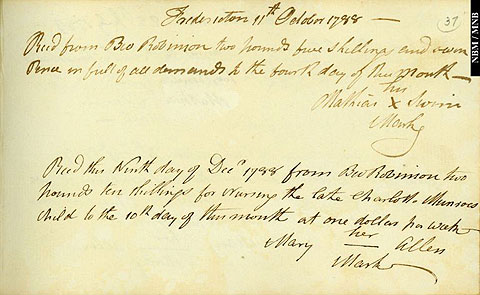 Fredericton 11th October 1788 —
37
Recd from Bev Robinson two pounds five shillings and seven
Pence in full of all demands to the fourth day of this month —
his
Mathias x Swim
Mark
Recd this Ninth day of Decr 1788 from Bev Robinson two
pounds ten shillings for nursing the late Charlotte Munroes
child to the 10th day of this month at one dollar per week
her
Mary — Allen
Mark
NBM / MNB